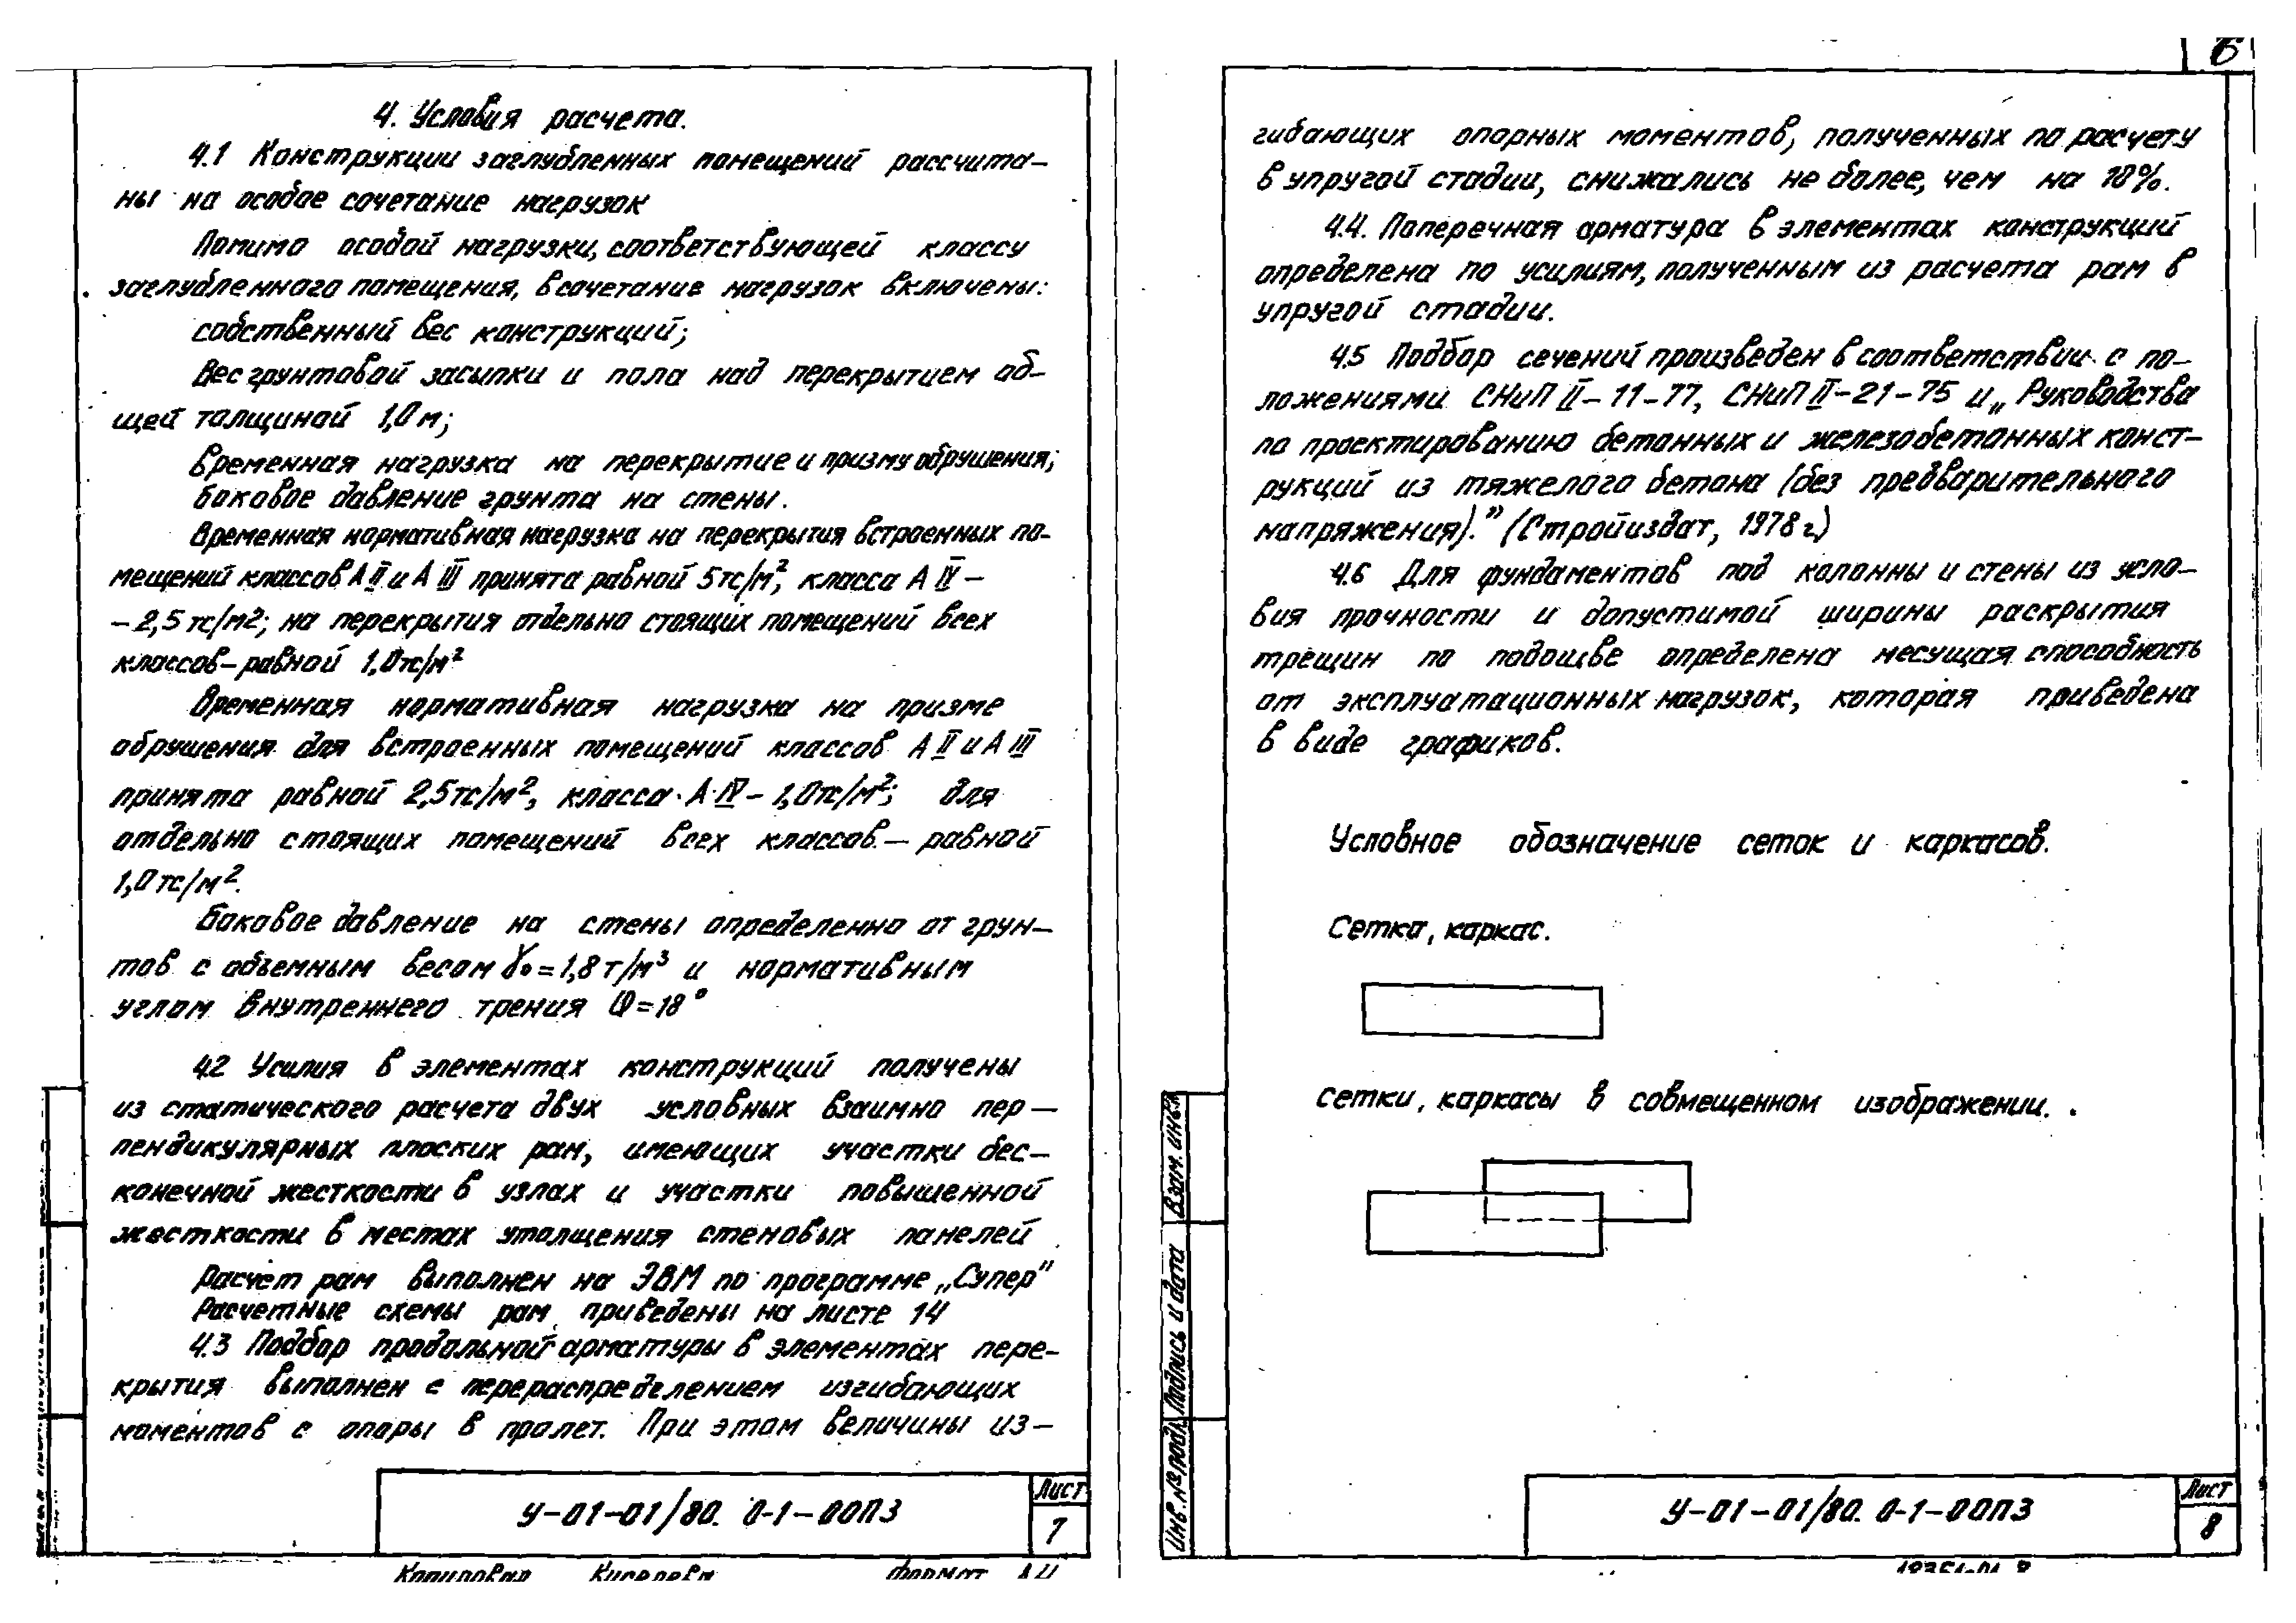 4. Условия расчета.
4.1 Конструкции заглубленных помещений рассчита-
ны на особое сочетание нагрузок
Помимо особой нагрузки, соответствующей классу
заглубленного помещения, в сочетание нагрузок включены:
собственный вес конструкций;
Вес грунтовой засыпки и пола над перекрытием об-
щей толщиной 1,0 м;
Временная нагрузка на перекрытие и призму обрушения;
боковое давление грунта на стены.
Временная нормативная нагрузка на перекрытия встроенных по-
мещений классов А II и А III принята равной 5тс/м², класса А IV -
- 2,5 тс/м²; на перекрытия отдельно стоящих помещений всех
классов - равной 1,0тс/м²
Временная нормативная нагрузка на призме
обрушения для встроенных помещений классов А II и А III
принята равной 2,5тс/м², класса А IV - 1,0тс/м²; для
отдельно стоящих помещений всех классов - равной
1,0 тс/м².
Боковое давление на стены определенно от грун-
тов с объемным весом γ₀=1,8 т/м³ и нормативным
углом внутреннего трения φ=18°
4.2 Усилия в элементах конструкций получены
из статического расчета двух условных взаимно пер-
пендикулярных плоских рам, имеющих участки бес-
конечной жесткости в узлах и участки повышенной
жесткости в местах утолщения стеновых панелей
Расчет рам выполнен на ЭВМ по программе „Супер"
Расчетные схемы рам приведены на листе 14
4.3 Подбор продольной арматуры в элементах пере-
крытия выполнен с перераспределением изгибающих
моментов с опоры в пролет. При этом величины из-
У-01-01/80. 0-1-00ПЗ
Лист
7
Копировал Киселева Формат
6
гибающих опорных моментов, полученных по расчету
в упругой стадии, снижались не более, чем на 10%.
4.4. Поперечная арматура в элементах конструкций
определена по усилиям, полученным из расчета рам в
упругой стадии.
4.5 Подбор сечений произведен в соответствии с по-
ложениями СНиП II-11-77, СНиП II-21-75 и „Руководства
по проектированию бетонных и железобетонных конст-
рукций из тяжелого бетона (без предварительного
напряжения)." (Стройиздат, 1978 г.)
4.6 Для фундаментов под колонны и стены из усло-
вия прочности и допустимой ширины раскрытия
трещин по подошве определена несущая способность
от эксплуатационных нагрузок, которая приведена
в виде графиков.
Условное обозначение сеток и каркасов.
Сетка, каркас.
сетки, каркасы в совмещенном изображении.
Взам. инв. №
Подпись и дата
Инв. № подл.
У-01-01/80. 0-1-00ПЗ
Лист
8